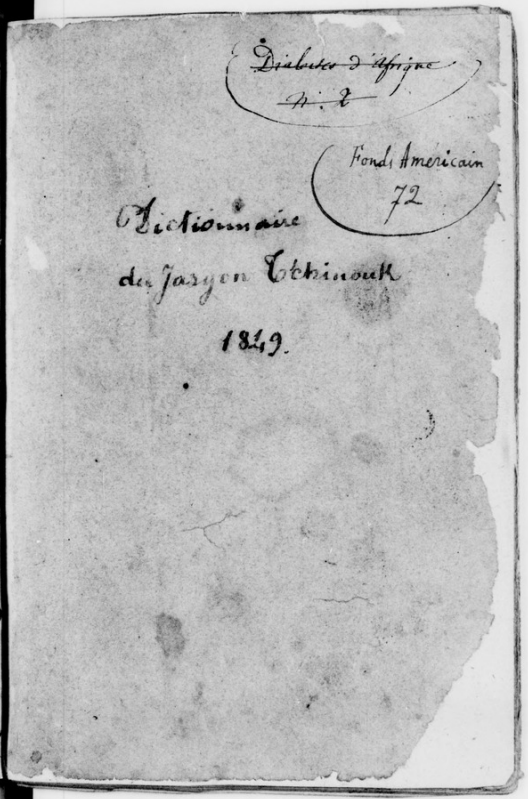 Dialectes d'Afrique
N. 2
Fonds Américain
72
Dictionnaire
du Jargon Tchinouk
1849.